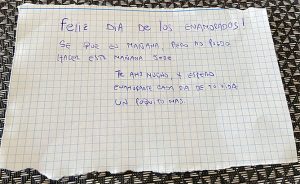 FELIZ DIA DE LOS ENAMORADOS!
SE QUE ES MAÑANA, PERO NO PUEDO
HACER ESTO MAÑANA JEJE
TE AMO MUCHO, Y ESPERO
ENAMORARTE CADA DIA DE TU VIDA
UN POQUITO MAS.